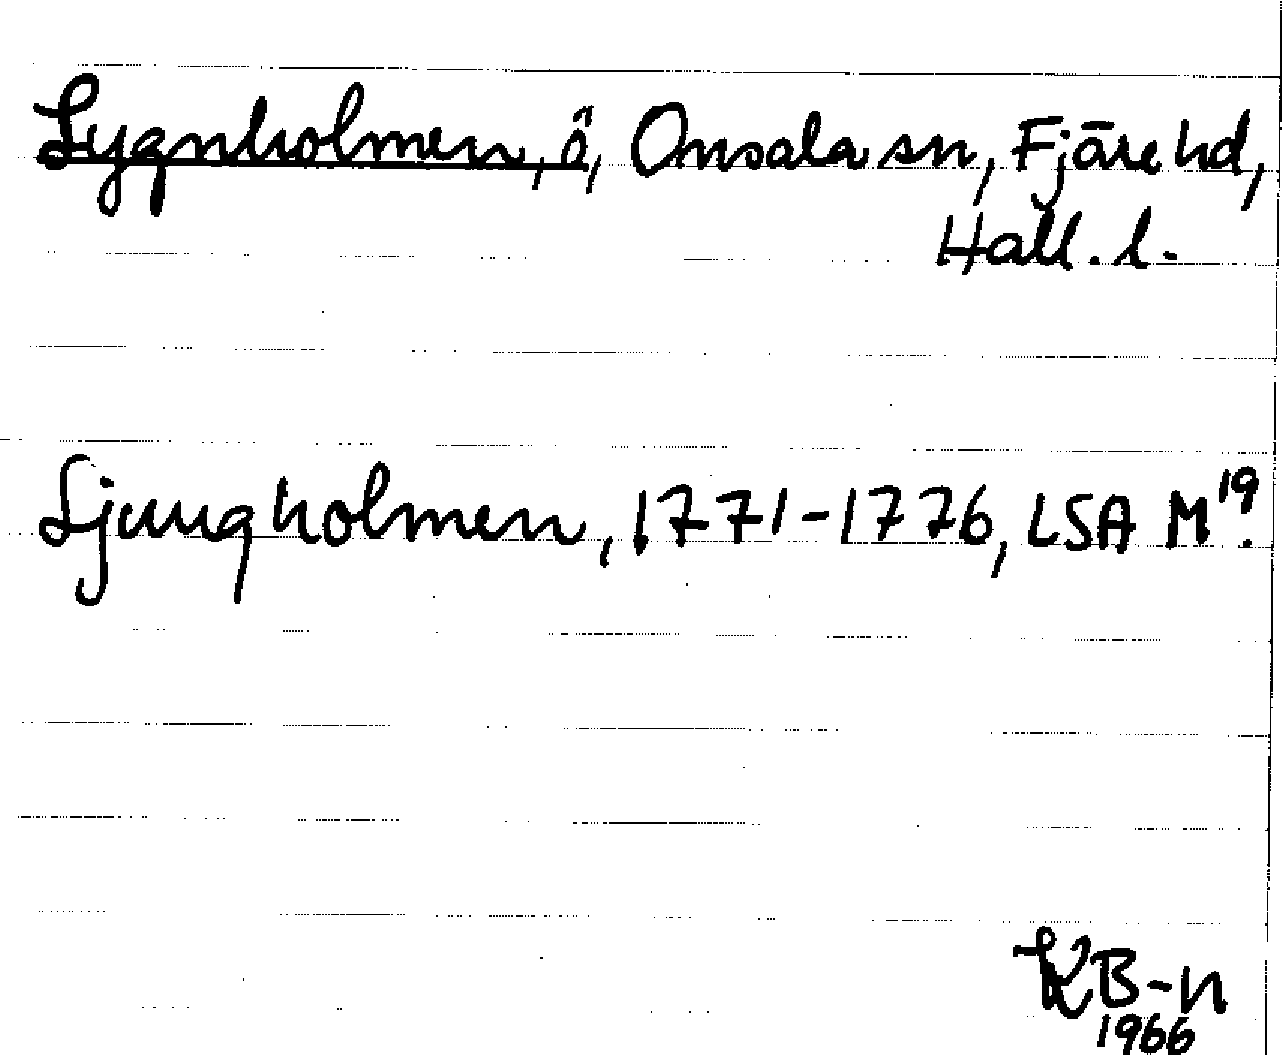 Lygnholmen, ö, Onsala sn, Fjäre hd,
Hall. l.
Ljungholmen, 1771-1776, LSA M19.
KB-n
1966